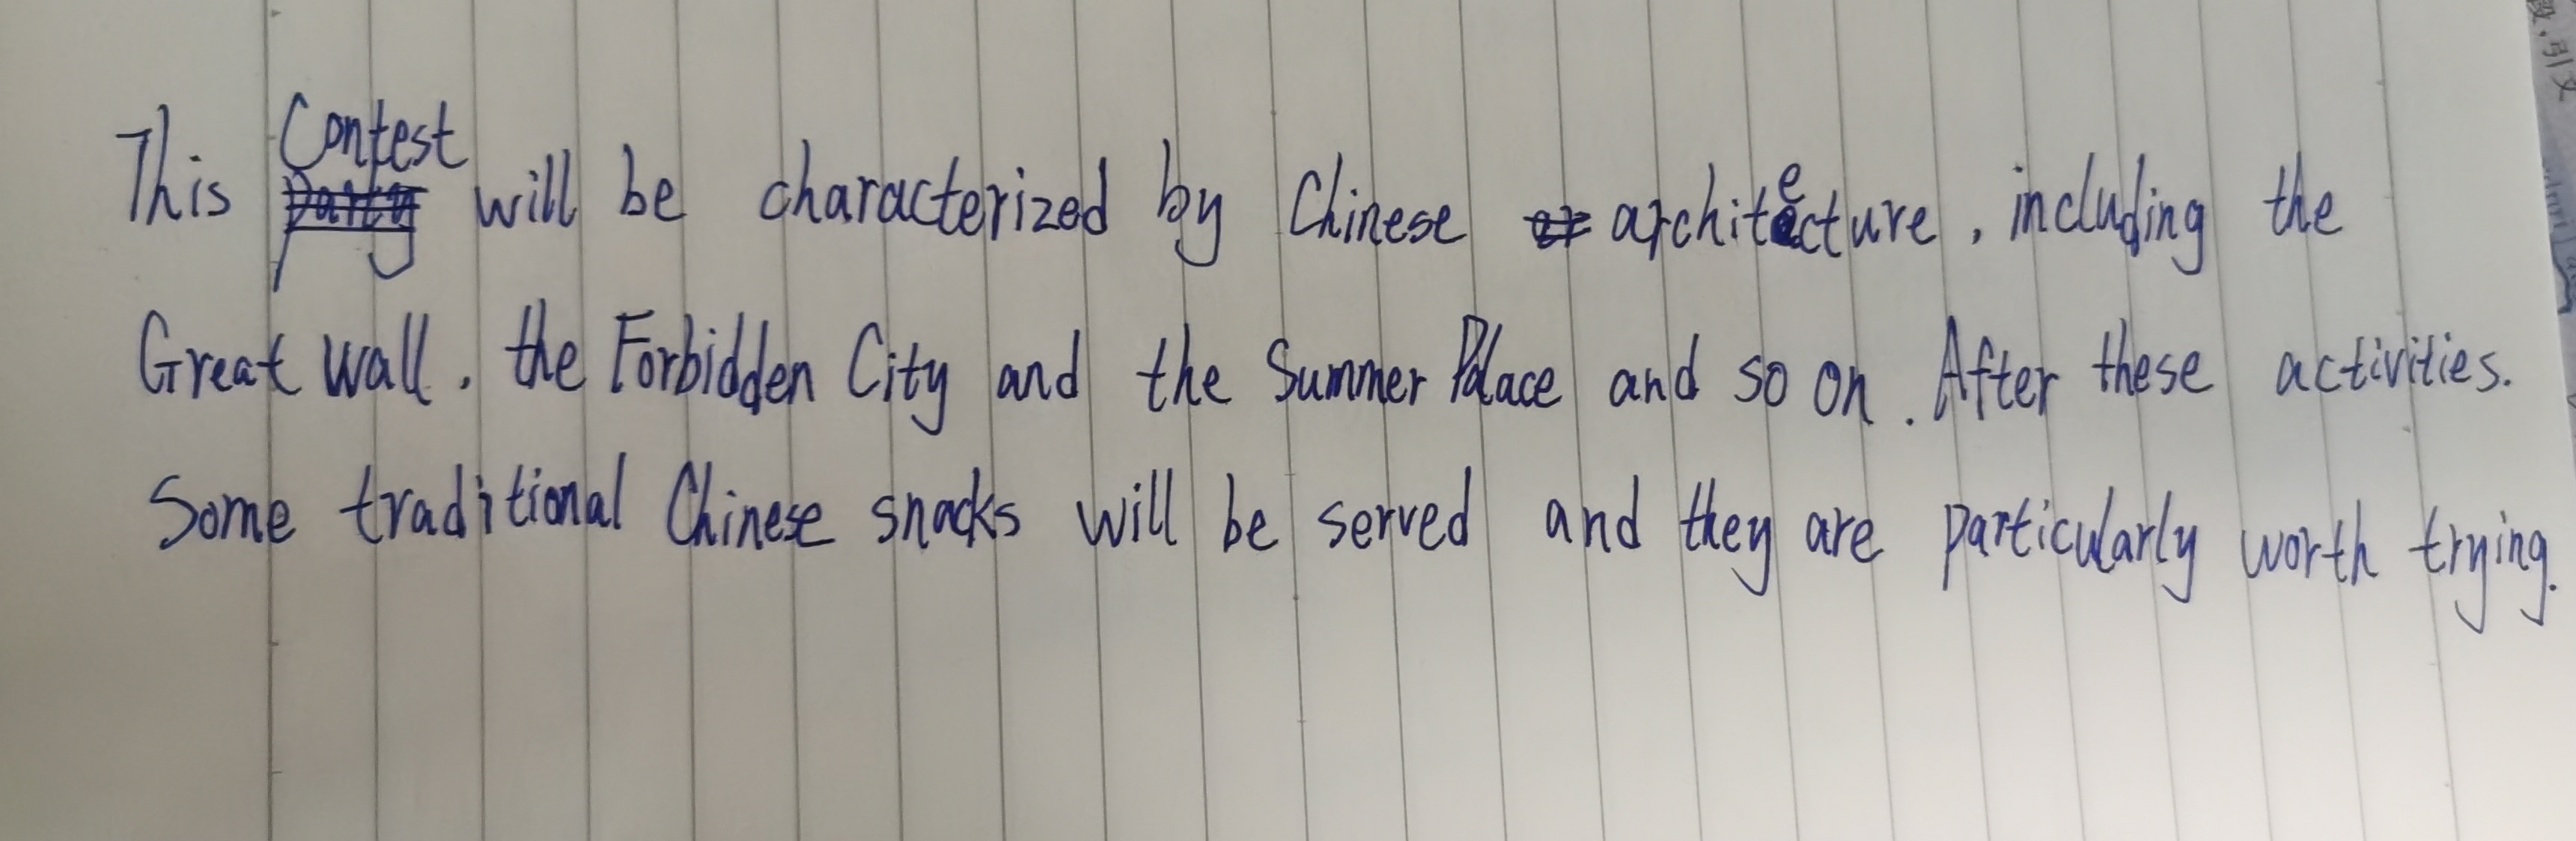 This Contest will be characterized by Chinese architecture, including the
Great Wall, the Forbidden City and the Summer Palace and so on. After these activities.
Some traditional Chinese snacks will be served and they are particularly worth trying.